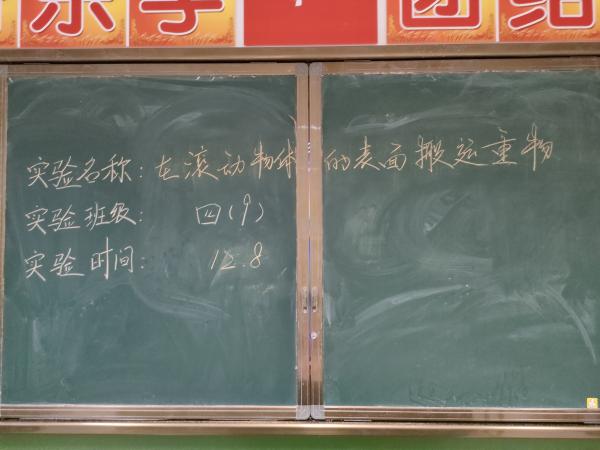 乐学 团结
实验名称：在滚动物体的表面搬运重物
实验班级： 四(9)
实验时间： 12.8